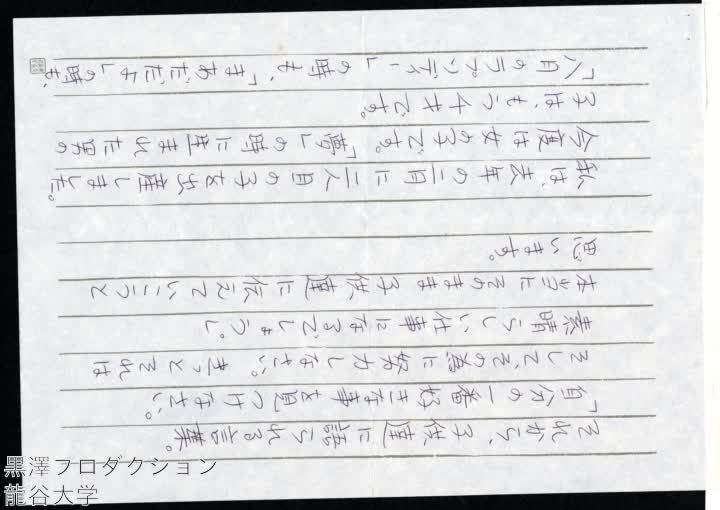 それから、子供達に語られる言葉。
「自分の一番好きな事を見つけなさい。
そして、その為に努力しなさい。きっとそれは
素晴らしい仕事になるでしょう」。
本当にそのまま子供達に伝えていこうと
思います。
私は、去年の二月に二人目の子を出産しました。
今度は女の子です。「夢」の時に産まれた男の
子は、もう4才です。
「八月のラプソディー」の時も、「まあだだよ」の時も、
黒澤プロダクション
龍谷大学